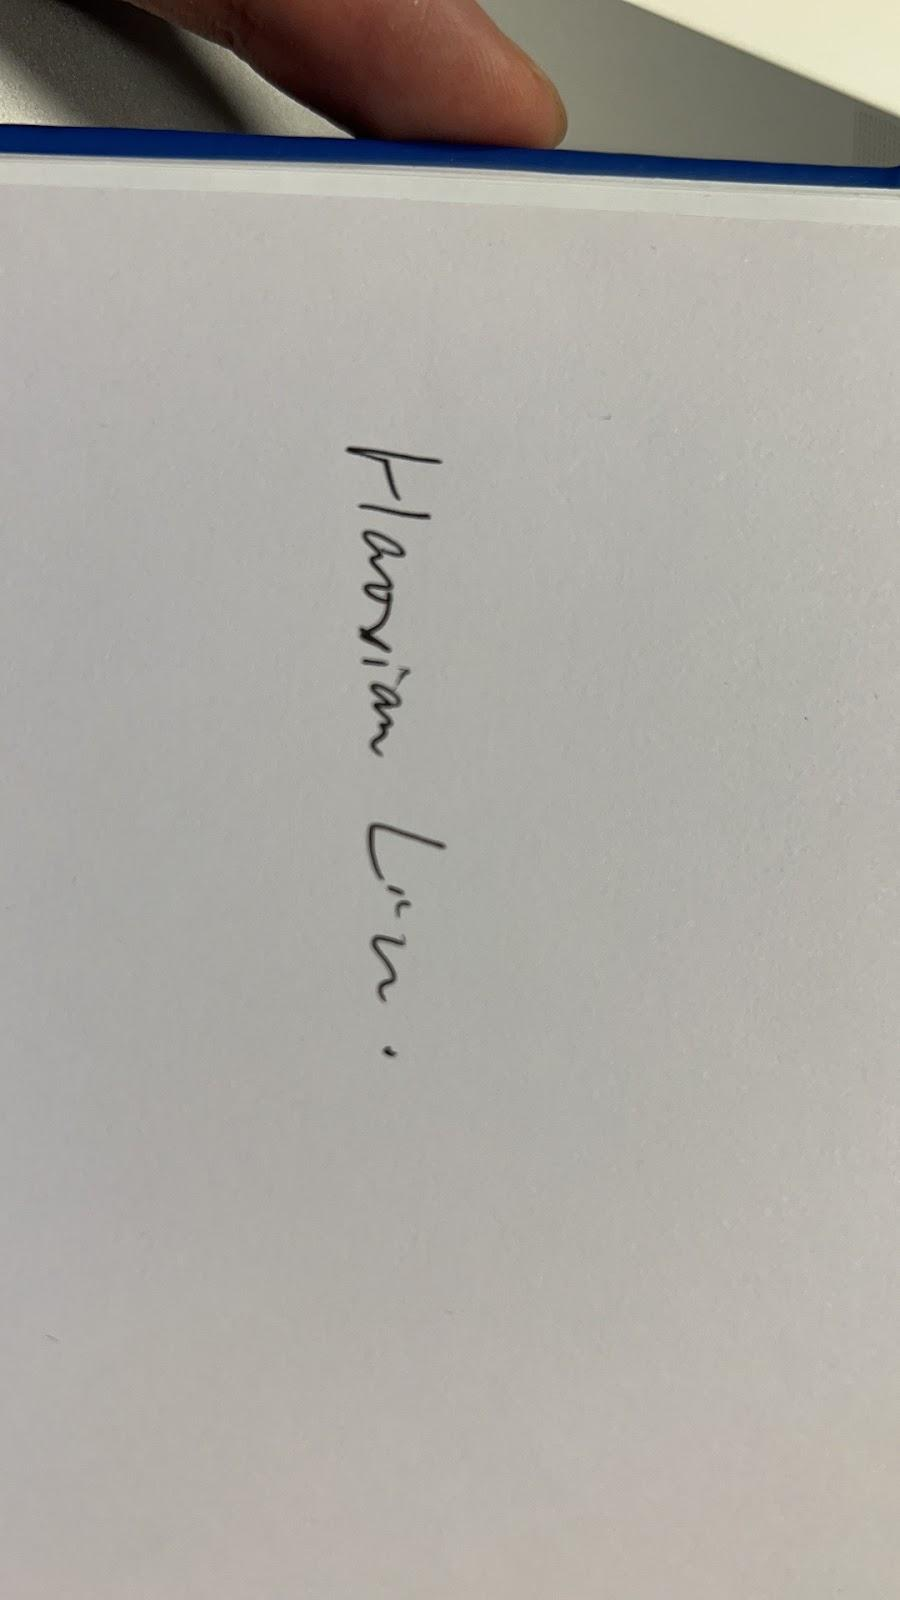 Haoxian Lin.